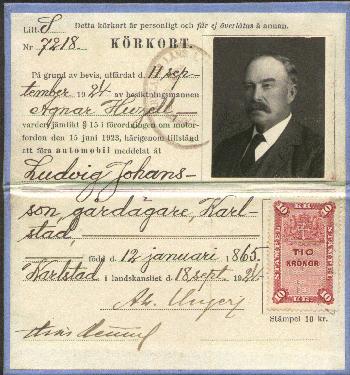 Litt. S Detta körkort är personligt och får ej överlåtas å annan.
Nr 7218. KÖRKORT.
På grund av bevis, utfärdat d. 11 sep-
tember 1924 av besiktningsmannen
Agnar Huzell
varder jämlikt § 15 i förordningen om motor-
fordon den 15 juni 1923, härigenom tillstånd
att föra automobil meddelat åt
Ludvig Johans-
son, gårdägare, Karl-
stad,
född d. 12 januari 1865.
Karlstad i landskansliet d. 18 sept. 1924
10 10
TIO
KRONOR
10 10
Stämpel 10 kr.